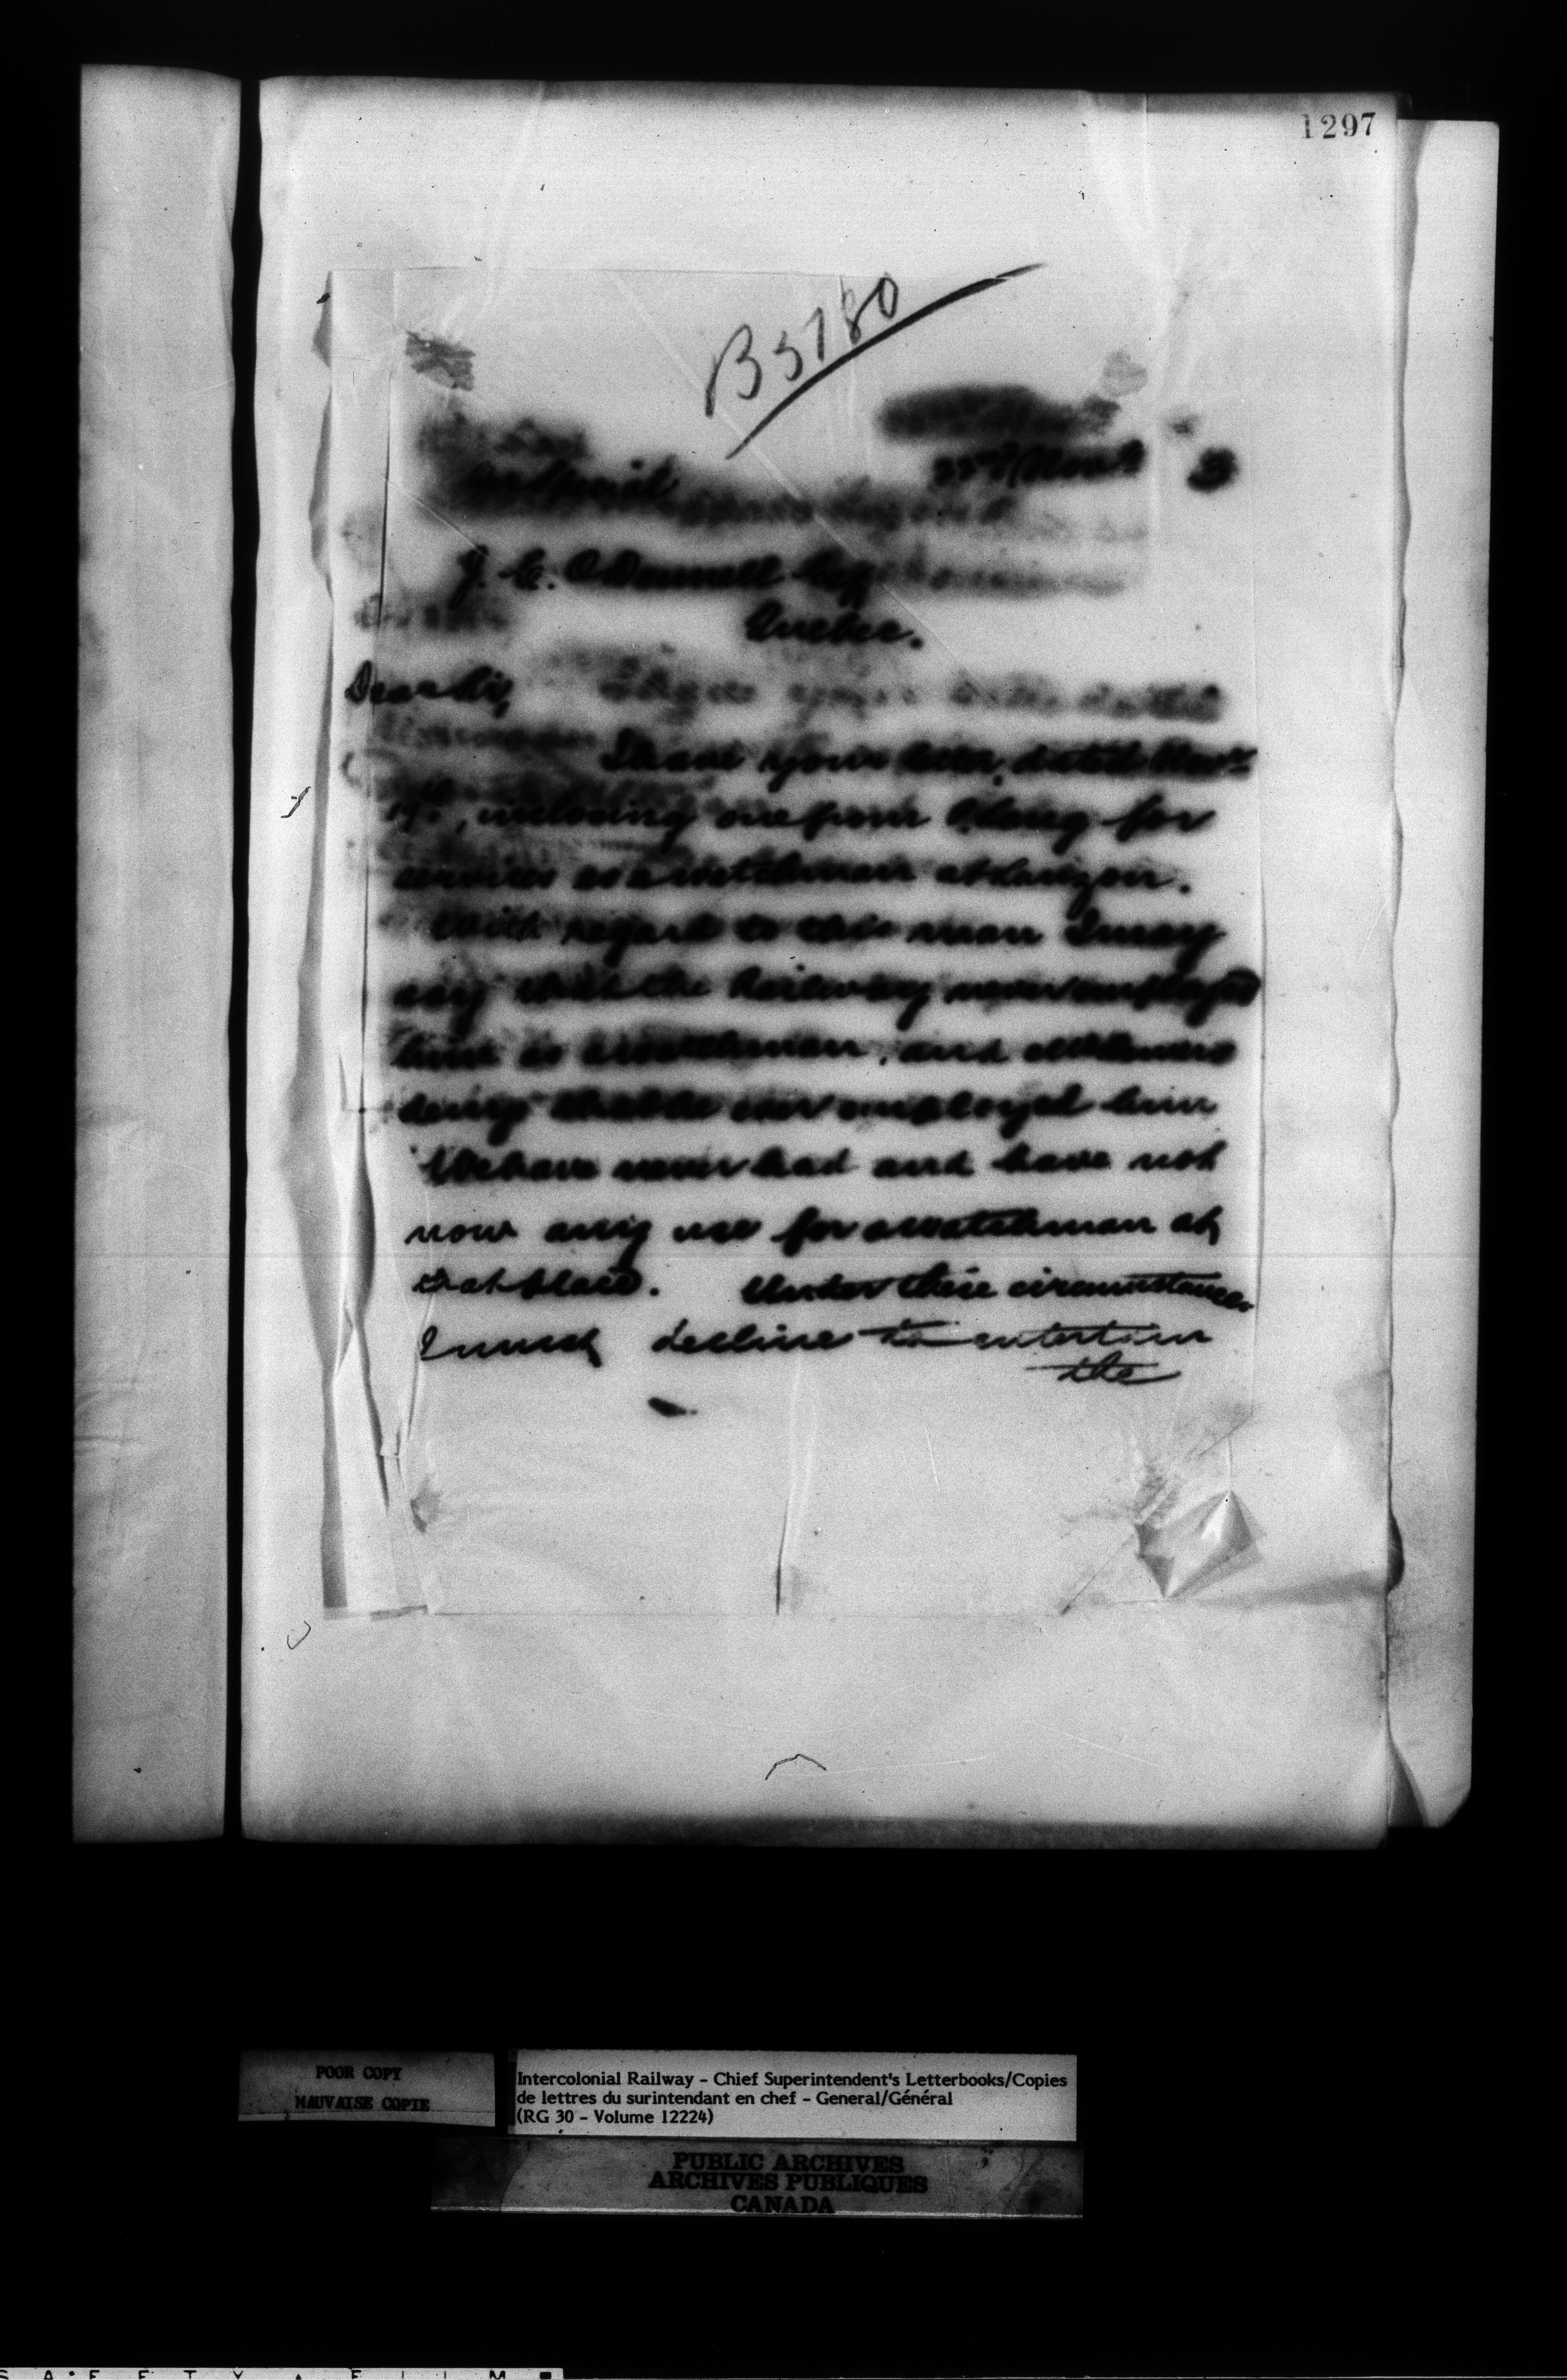 1297
B5780
22nd Novr 3
J. E. O'Donnell Esq
Quebec.
Dear Sir,
I have your letter, dated Novr
19th, inclosing one from for
services as a watchman at Lauzon.
With regard to this man I may
say that the Railway never employed
him as a watchman, and
deny that he ever employed him
We have never had and have not
now any use for a watchman at
that place. Under these circumstances
I must decline to entertain
the
POOR COPY
MAUVAISE COPIE
Intercolonial Railway - Chief Superintendent's Letterbooks/Copies
de lettres du surintendant en chef - General/Général
(RG 30 - Volume 12224)
PUBLIC ARCHIVES
ARCHIVES PUBLIQUES
CANADA